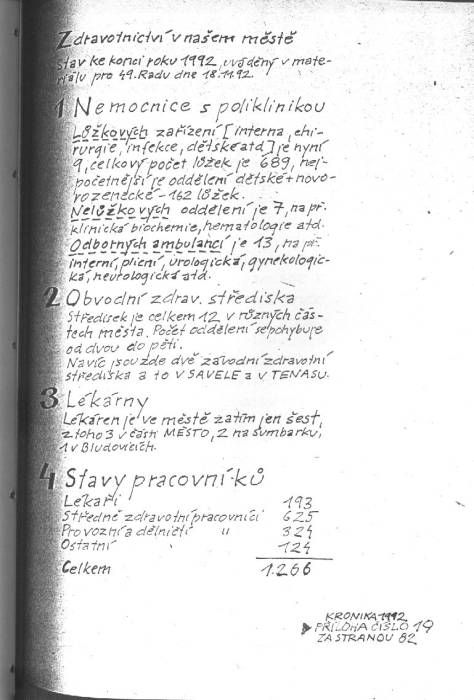 Zdravotnictví v našem městě
stav ke konci roku 1992, uváděný v mate-
riálu pro 49. Radu dne 18.11.92.
1 Nemocnice s poliklinikou
Lůžkových zařízení [interna, chi-
rurgie, infekce, dětské atd] je nyní
9, celkový počet lůžek je 689, nej-
početnější je oddělení dětské + novo-
rozenecké - 162 lůžek.
Nelůžkových oddělení je 7, na př.
klinická biochemie, hematologie atd.
Odborných ambulancí je 13, na př.
interní, plicní, urologická, gynekologic-
ká, neurologická atd.
2 Obvodní zdrav. střediska
Středisek je celkem 12 v různých čás-
tech města. Počet oddělení se pohybuje
od dvou do pěti.
Navíc jsou zde dvě závodní zdravotní
střediska a to V SAVELE a v TENASU.
3 Lékárny
Lékáren je ve městě zatím jen šest,
z toho 3 v části MĚSTO, 2 na Šumbarku,
1 v Bludovicích.
4 Stavy pracovníků
Lékaři 193
Středně zdravotní pracovníci 625
Provozní a dělničtí " 324
Ostatní 124
Celkem 1.266
KRONIKA 1992
PŘÍLOHA ČÍSLO 19
ZA STRANOU 82